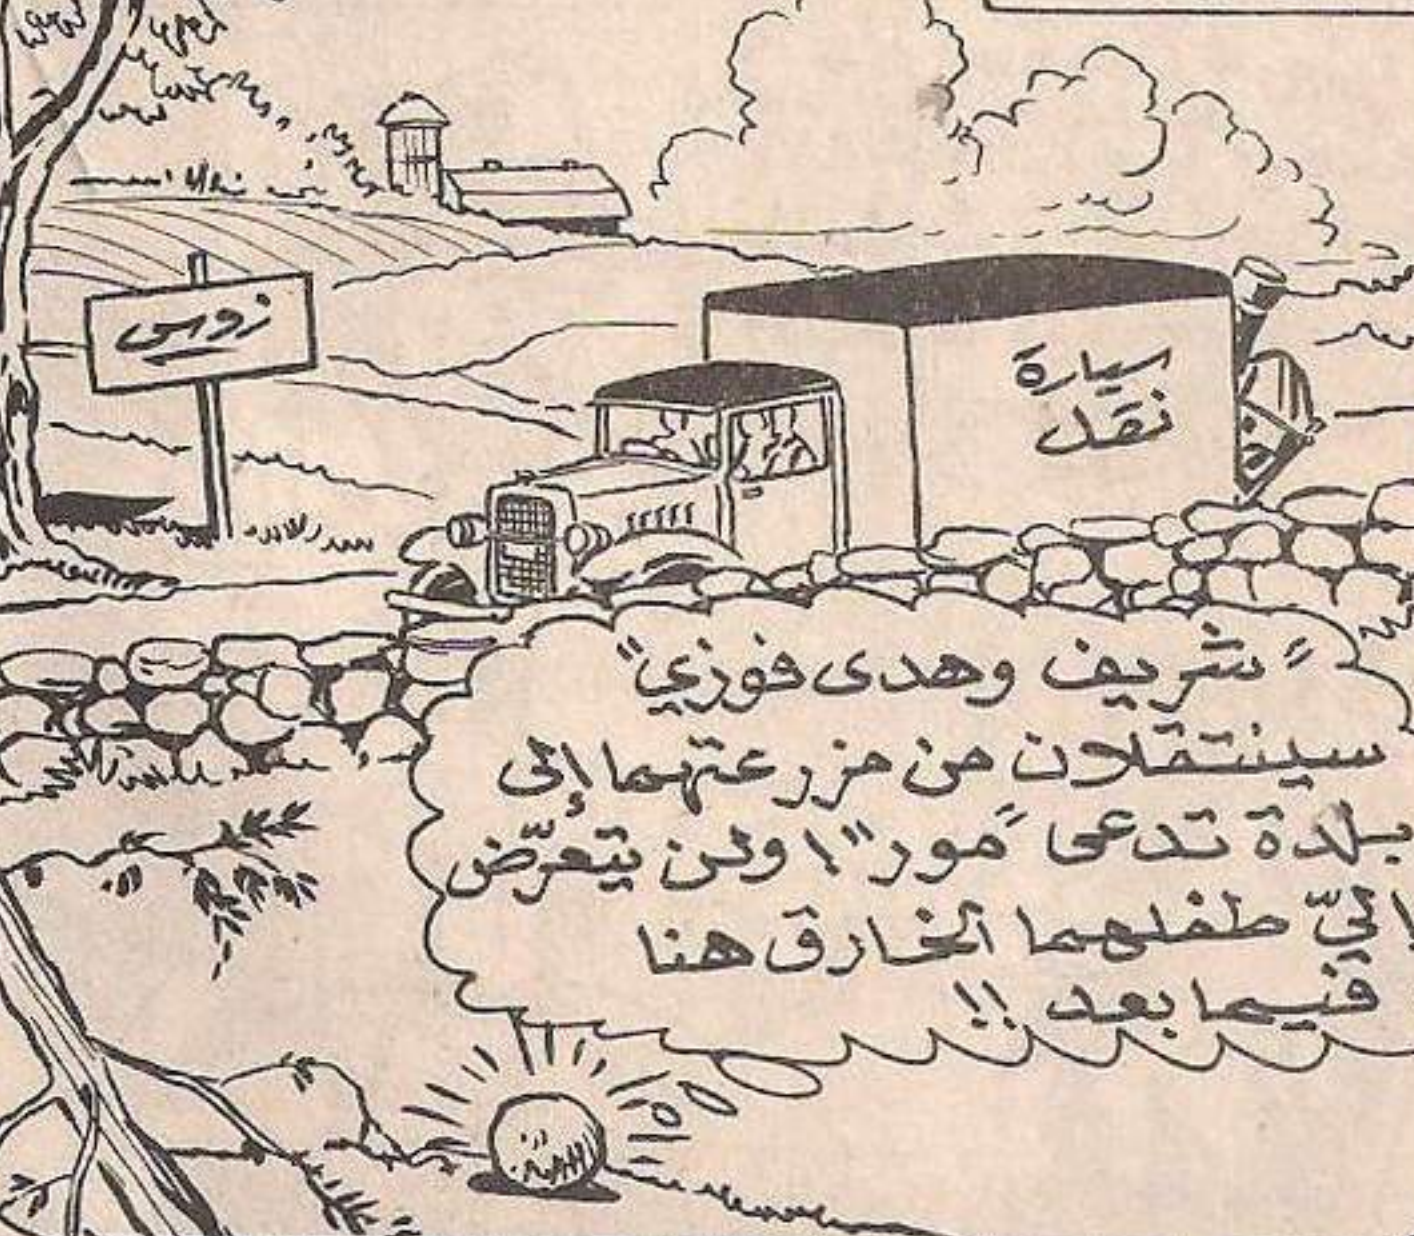 زوس
سيارة
نقل
"شريف وهدى فوزي"
سينتقلان من مزرعتهما إلى
بلدة تدعى "مور"! ولن يتعرّض
إليّ طفلهما الخارق هنا
فيما بعد !!